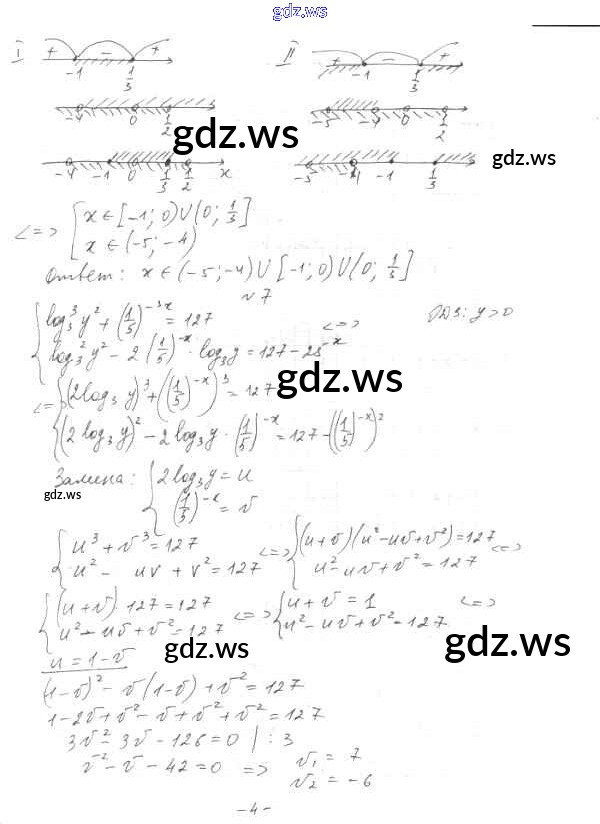 gdz.ws
I + -1 - 1/3 +
II + -1 - 1/3 +
-4 0 1/2
-5 -4 0 1/2
gdz.ws
gdz.ws
-4 -1 0 1/3 1/2 x
-5 -4 -1 1/3
<=> [ x ∈ [-1; 0) ∪ (0; 1/3]
x ∈ (-5; -4)
Ответ: x ∈ (-5; -4) ∪ [-1; 0) ∪ (0; 1/3]
№7
{ log₃³ y² + (1/5)^(-3x) = 127
ОДЗ: y > 0
log₃² y² - 2 (1/5)^(-x) · log₃ y = 127 - 25^(-x) <=>
gdz.ws
<=> { (2log₃ y)³ + ((1/5)^(-x))³ = 127
(2 log₃ y)² - 2 log₃ y · (1/5)^(-x) = 127 - ((1/5)^(-x))²
Замена: { 2 log₃ y = u
gdz.ws
(1/5)^(-x) = v
{ u³ + v³ = 127
u² - uv + v² = 127
<=> { (u+v)(u² - uv + v²) = 127
u² - uv + v² = 127 <=>
{ (u+v) · 127 = 127
u² - uv + v² = 127
<=> { u + v = 1
u² - uv + v² = 127 <=>
gdz.ws
gdz.ws
u = 1 - v
(1-v)² - v(1-v) + v² = 127
1 - 2v + v² - v + v² + v² = 127
3v² - 3v - 126 = 0 | : 3
v² - v - 42 = 0 => v₁ = 7
v₂ = -6
-4-